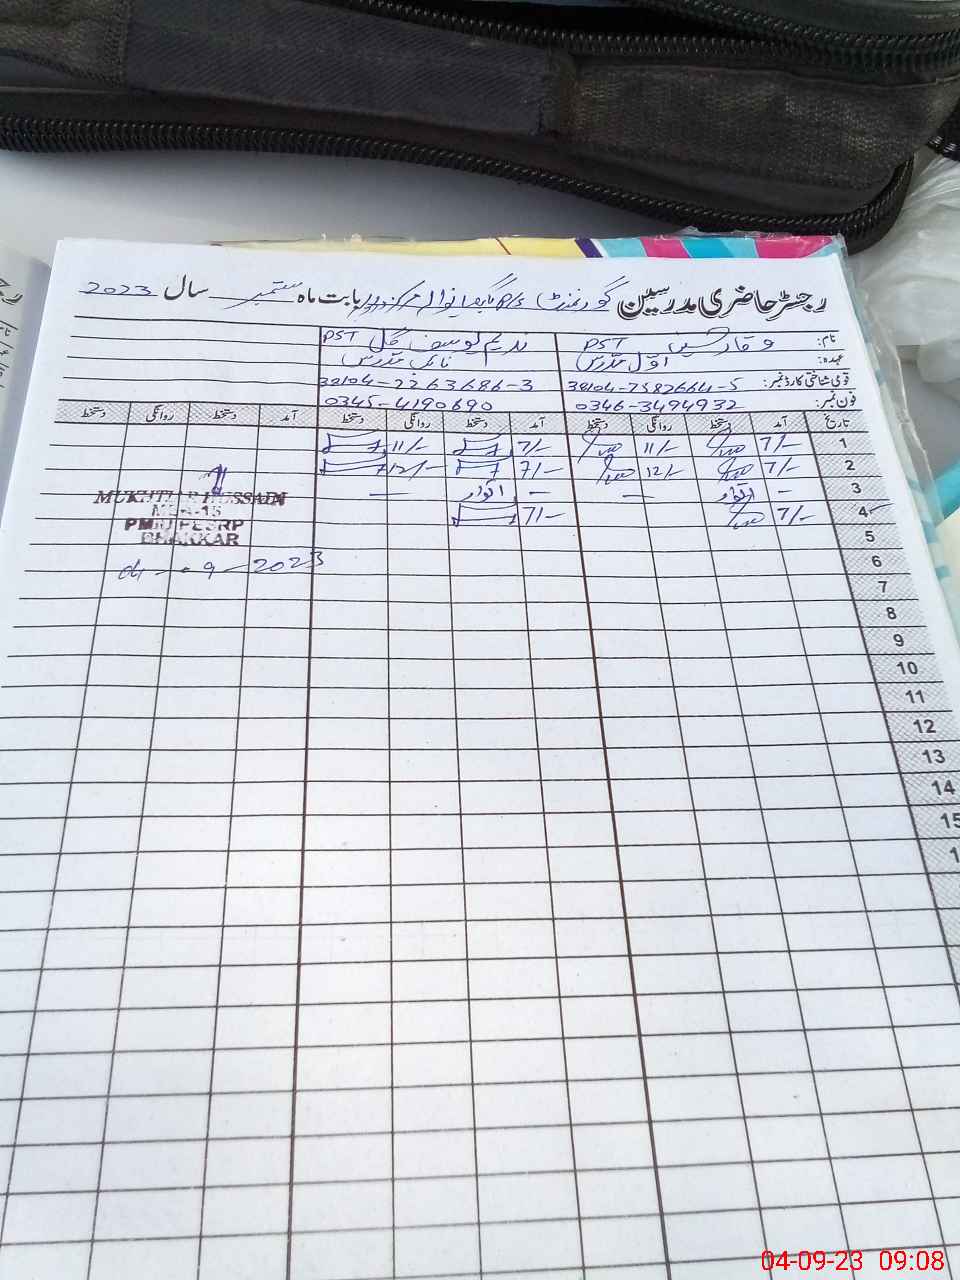 رجسٹر حاضری مدرسین گورنمنٹ P/S بابت ماہ ستمبر سال 2023
نام: وقار حسین PST ندیم یوسف گل PST
عہدہ: اوّل مدرس نائب مدرس
قومی شناختی کارڈ نمبر: 38104-7582664-5 38104-2263686-3
فون نمبر: 0346-3494932 0345-4190690
تاریخ آمد دستخط روانگی دستخط آمد دستخط روانگی دستخط آمد دستخط روانگی دستخط
1 7/- 11/- 7/- 11/-
2 7/- 12/- 7/- 12/-
3 - اتوار — - اتوار —
4 7/- 7/-
5
6
7
8
9
10
11
12
13
14
15
1
MUKHTIAR HUSSAIN
MEA-15
PMIU PESRP
BHAKKAR
04-09-2023
04-09-23 09:08